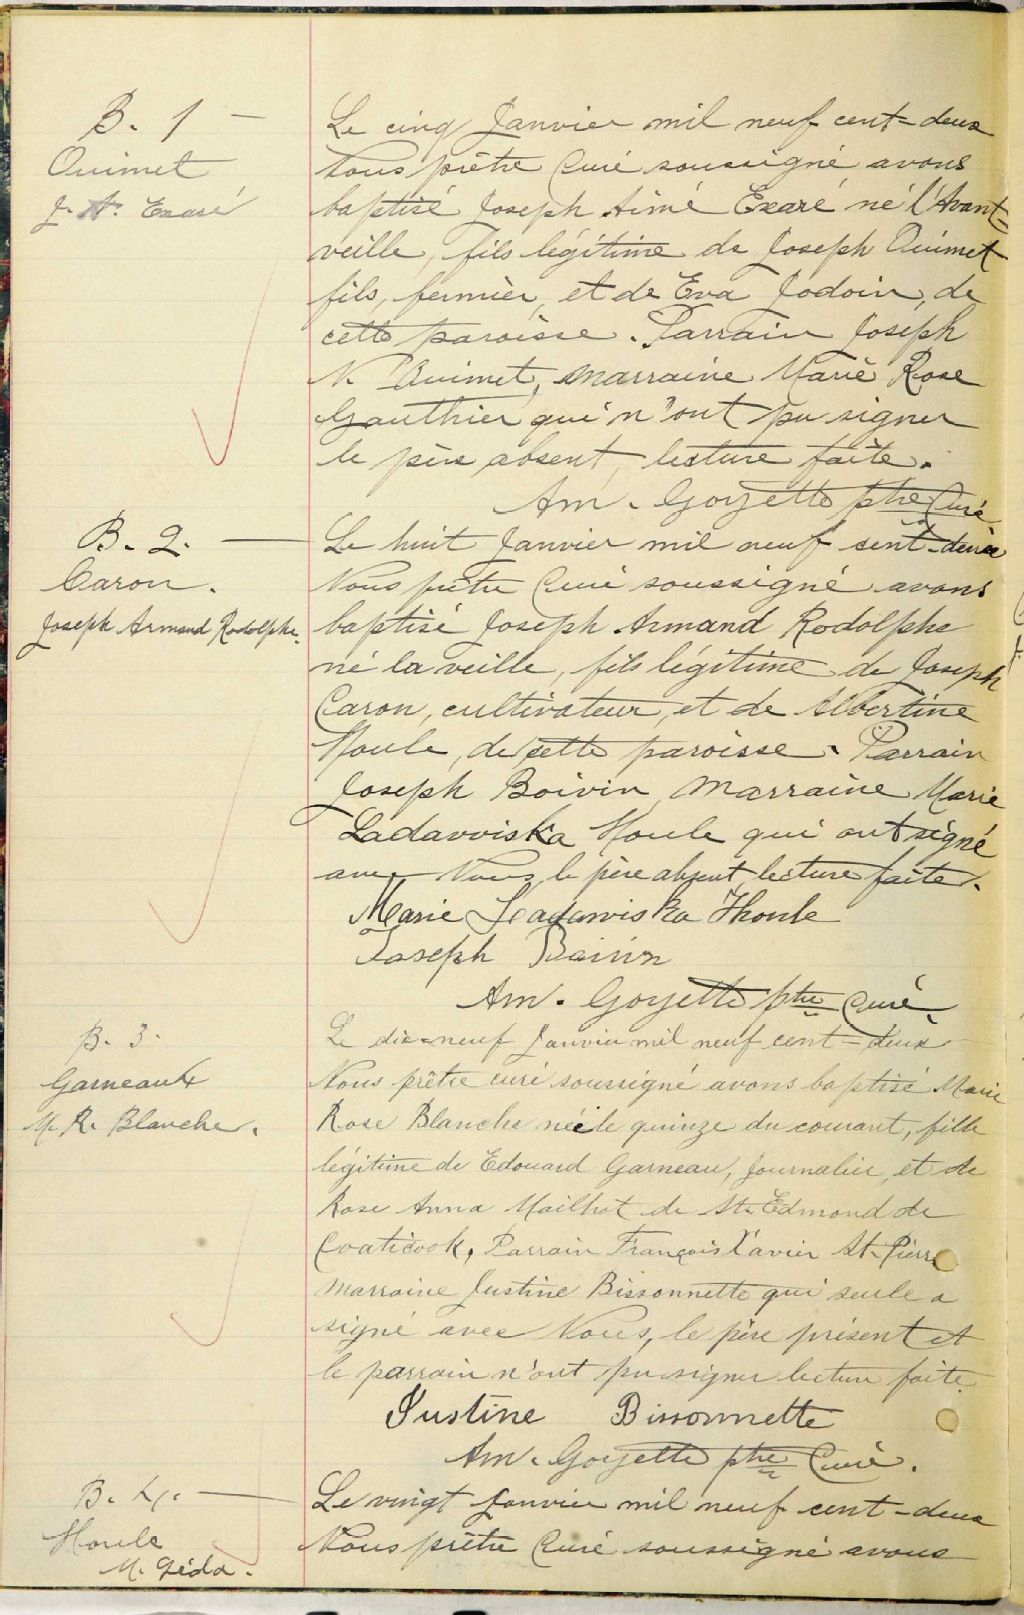 B. 1 —
Ouimet
J. A. Exaré
Le cinq Janvier mil neuf cent-deux
Nous prêtre Curé soussigné avons
baptisé Joseph Aimé Exaré né l'Avant-
veille, fils légitime de Joseph Ouimet
fils, fermier, et de Eva Jodoin, de
cette paroisse. Parrain Joseph
N. Ouimet, marraine Marie Rose
Gauthier qui n'ont pu signer
le père absent, lecture faite.
Am. Goyette ptre Curé
B. 2. —
Caron.
Joseph Armand Rodolphe.
Le huit Janvier mil neuf cent-deux
Nous prêtre Curé soussigné avons
baptisé Joseph Armand Rodolphe
né la veille, fils légitime de Joseph
Caron, cultivateur, et de Albertine
Houle, de cette paroisse. Parrain
Joseph Boivin marraine Marie
Ladavviska Houle qui ont signé
avec Nous, le père absent lecture faite.
Marie Ladawiska Houle
Joseph Boivin
Am. Goyette ptre Curé.
B. 3.
Garneaux
M. R. Blanche.
Le dix-neuf Janvier mil neuf cent-deux
Nous prêtre curé soussigné avons baptisé Marie
Rose Blanche née le quinze du courant, fille
légitime de Edouard Garneau, Journalier, et de
Rose Anna Mailhot de St. Edmond de
Coaticook, Parrain François Xavier St. Pierre
marraine Justine Bissonnette qui seule a
signé avec Nous, le père présent et
le parrain n'ont pu signer lecture faite.
Justine Bissonnette
Am. Goyette ptre Curé.
B. 4. —
Houle
M. Léda.
Le vingt Janvier mil neuf cent-deux
Nous prêtre Curé soussigné avons